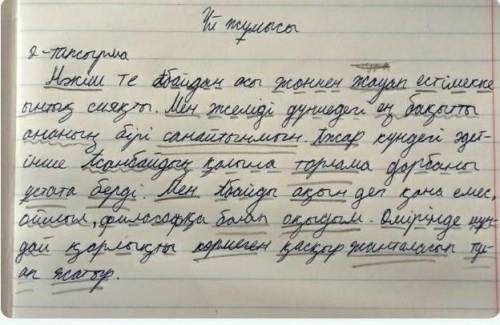 Үй жұмысы
2-тапсырма
Нәжім те Абайдан осы жөннен жауап естімекке
ынтық сияқты. Мен әжемді дүниедегі ең бақытты
ананың бірі санайтынмын. Ажар күндегі әдет
інше Асанбайдың қолына торлама дорбаны
ұстата берді. Мен Абайды ақын деп қана емес,
ойшыл, философқа балап оқыдым. Өмірінде мұн
дай қарлықты көрмеген қасқыр жанталасып тұ
ап жатыр.